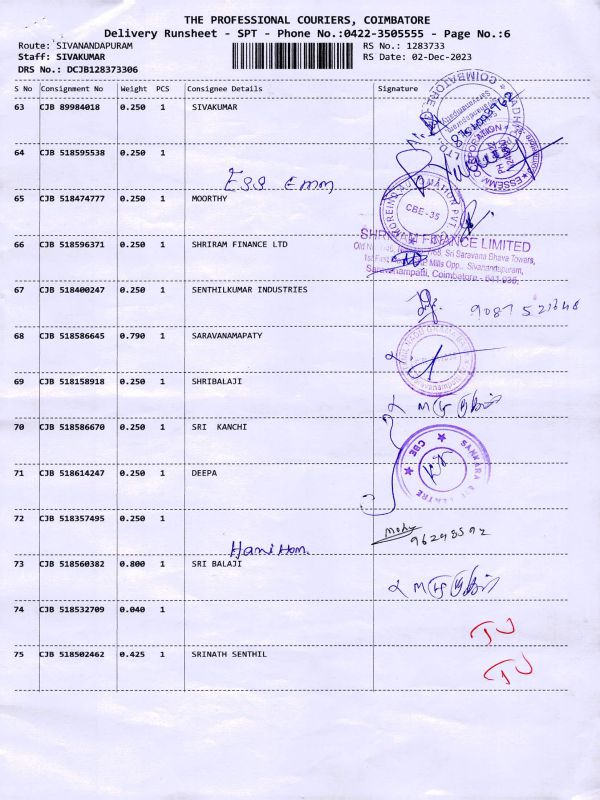 THE PROFESSIONAL COURIERS, COIMBATORE
Delivery Runsheet - SPT - Phone No.:0422-3505555 - Page No.:6
Route: SIVANANDAPURAM
RS No.: 1283733
Staff: SIVAKUMAR
RS Date: 02-Dec-2023
DRS No.: DCJB128373306
S No Consignment No Weight PCS Consignee Details Signature
63 CJB 89984018 0.250 1 SIVAKUMAR
64 CJB 518595538 0.250 1
ESS EMM
65 CJB 518474777 0.250 1 MOORTHY
CBE-35
66 CJB 518596371 0.250 1 SHRIRAM FINANCE LTD
SHRIRAM FINANCE LIMITED
Sri Saravana Bhava Towers,
Mills Opp., Sivanandapuram,
Saravanampatti, Coimbatore - 641 035.
67 CJB 518400247 0.250 1 SENTHILKUMAR INDUSTRIES
68 CJB 518586645 0.790 1 SARAVANAMAPATY
69 CJB 518158918 0.250 1 SHRIBALAJI
70 CJB 518586670 0.250 1 SRI KANCHI
CBE
SANKARA
71 CJB 518614247 0.250 1 DEEPA
72 CJB 518357495 0.250 1
Hani Hom.
73 CJB 518560382 0.800 1 SRI BALAJI
74 CJB 518532709 0.040 1
75 CJB 518502462 0.425 1 SRINATH SENTHIL